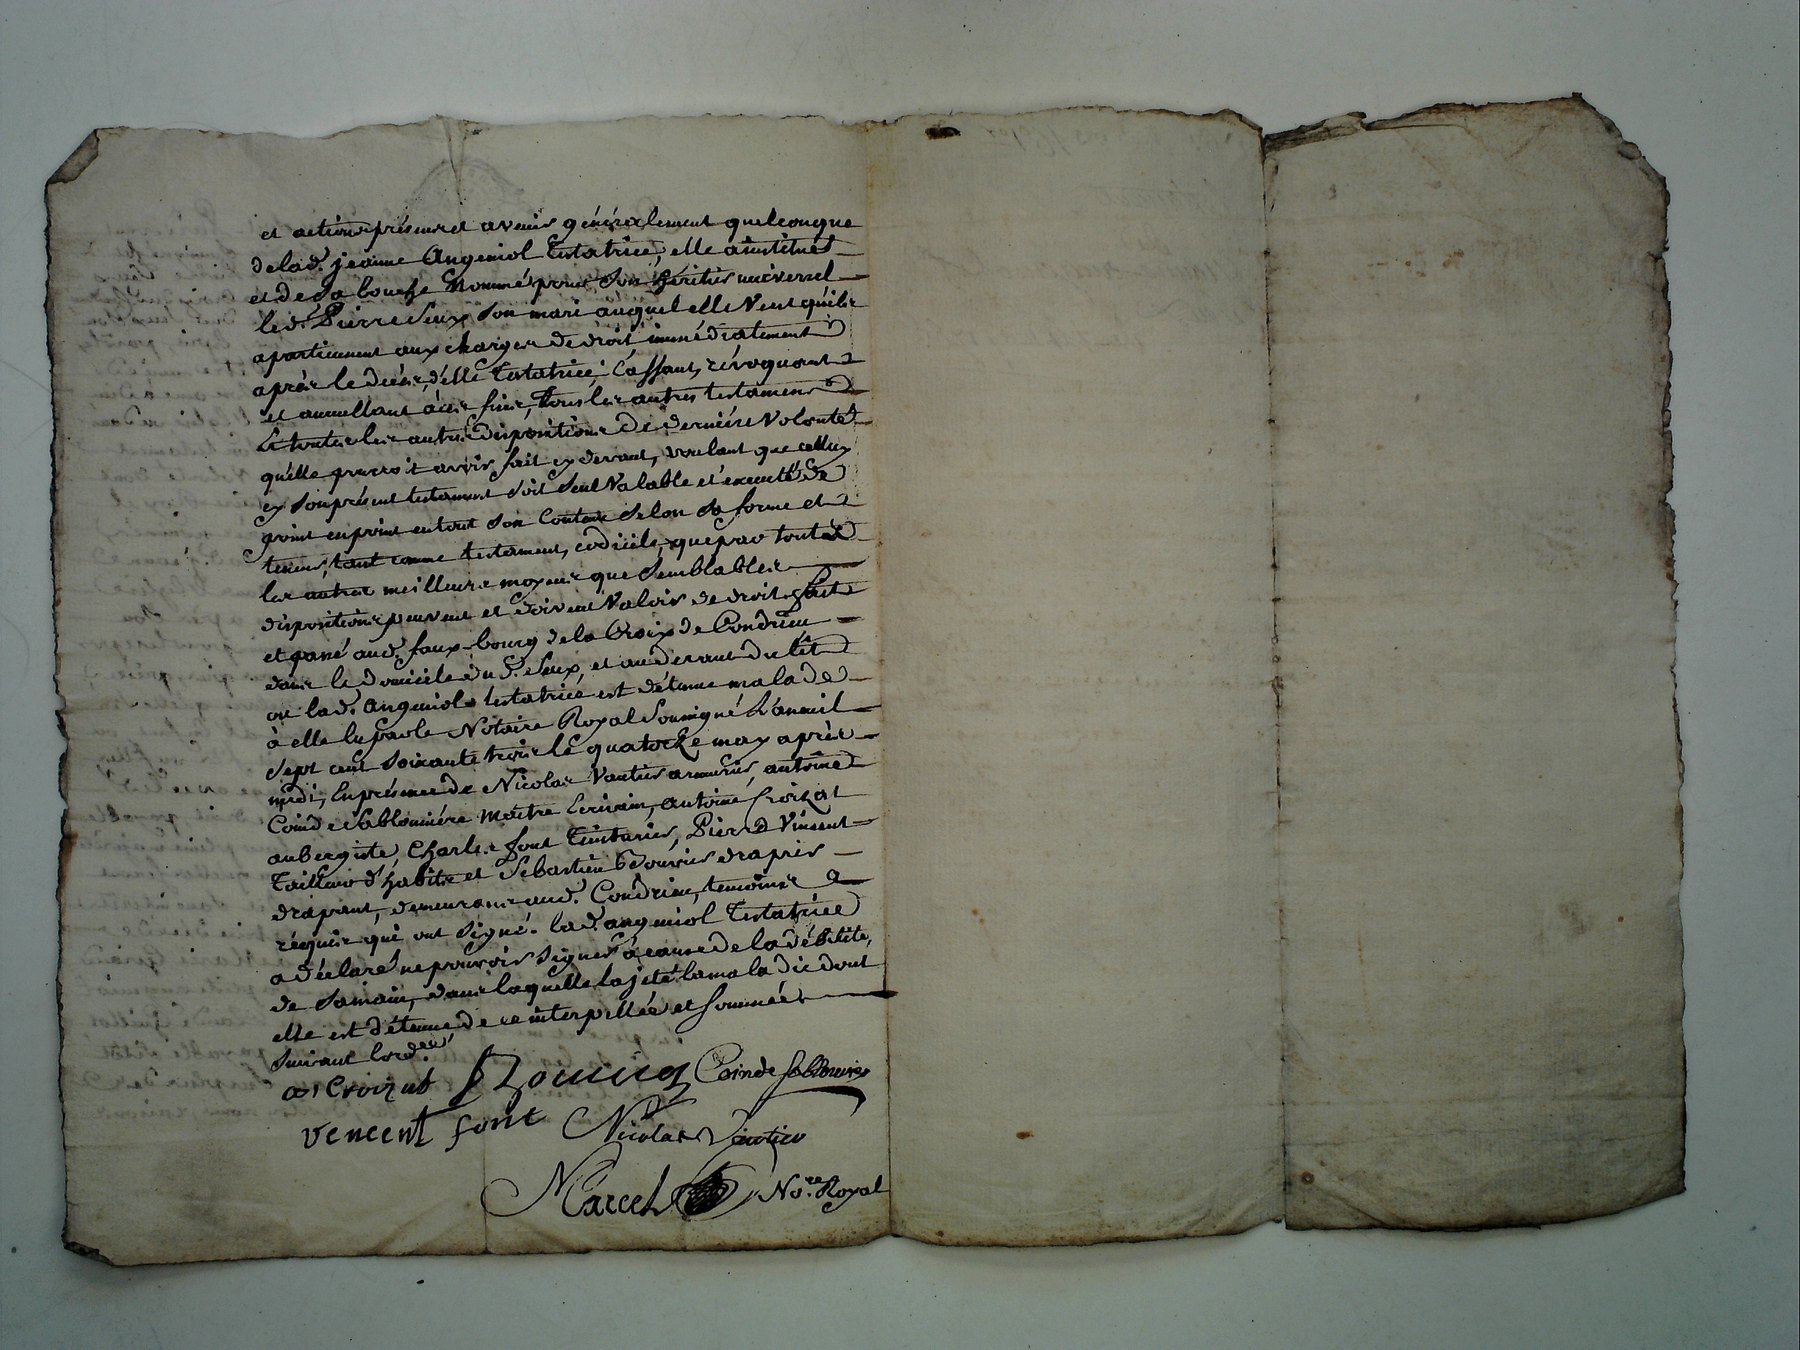 et actions présens et avenir généralement quelconque
de lad. jeanne Angeniol Testatrice, elle a institué
et de sa bouche Nommé pour son héritier universel
led. Pierre Seux son mari auquel elle Veut qu'ils
apartiennent aux charges de droit immédiatement
après le décès d'elle Testatrice, Cassant, révoquant
et annullant à ces fins, tous les autres testamens
Et toutes les autres dispositions de dernière Volonté
qu'elle pourroit avoir fait cy devant, voulant que celluy
cy son présent testament soit seul Valable et éxecuté de
point en point en tout son Contenu selon sa forme et
teneur, tant comme testament, codicils, que par toutes
les autres meilleurs moyens que semblables
dispositions peuvent et doivent Valoir de droit, fait
et passé aud. faux-bourg de la Croix de Condrieu
dans le domicile dud. Seux, et au devant du lit
ou lad. angeniol testatrice est détenue malade
à elle lu par le Notaire Royal soussigné L'an mil
sept cent soixante trois le quatorze may après
midi, En présence de Nicolas Vautier armurier, antoine
Coinde Sablonnière maître Ecrivain, antoine Croizat
aubergiste, Charles font Teinturier, Pierre Vincent
Tailleur d'habits et Sébastien ouvrier drapier
drapant, demeurans aud. Condrieu, temoins
réquis qui ont signé. lad. angeniol Testatrice
a déclaré ne pouvoir signer à cause de la débilité
de sa main, dans laquelle la jeté la maladie dont
elle est détenue de ce interpellée et sommée
suivant lord.ce
a Croizat Coinde Sablonière
vencent font Nicolas Vautier
Marcel No.re Royal